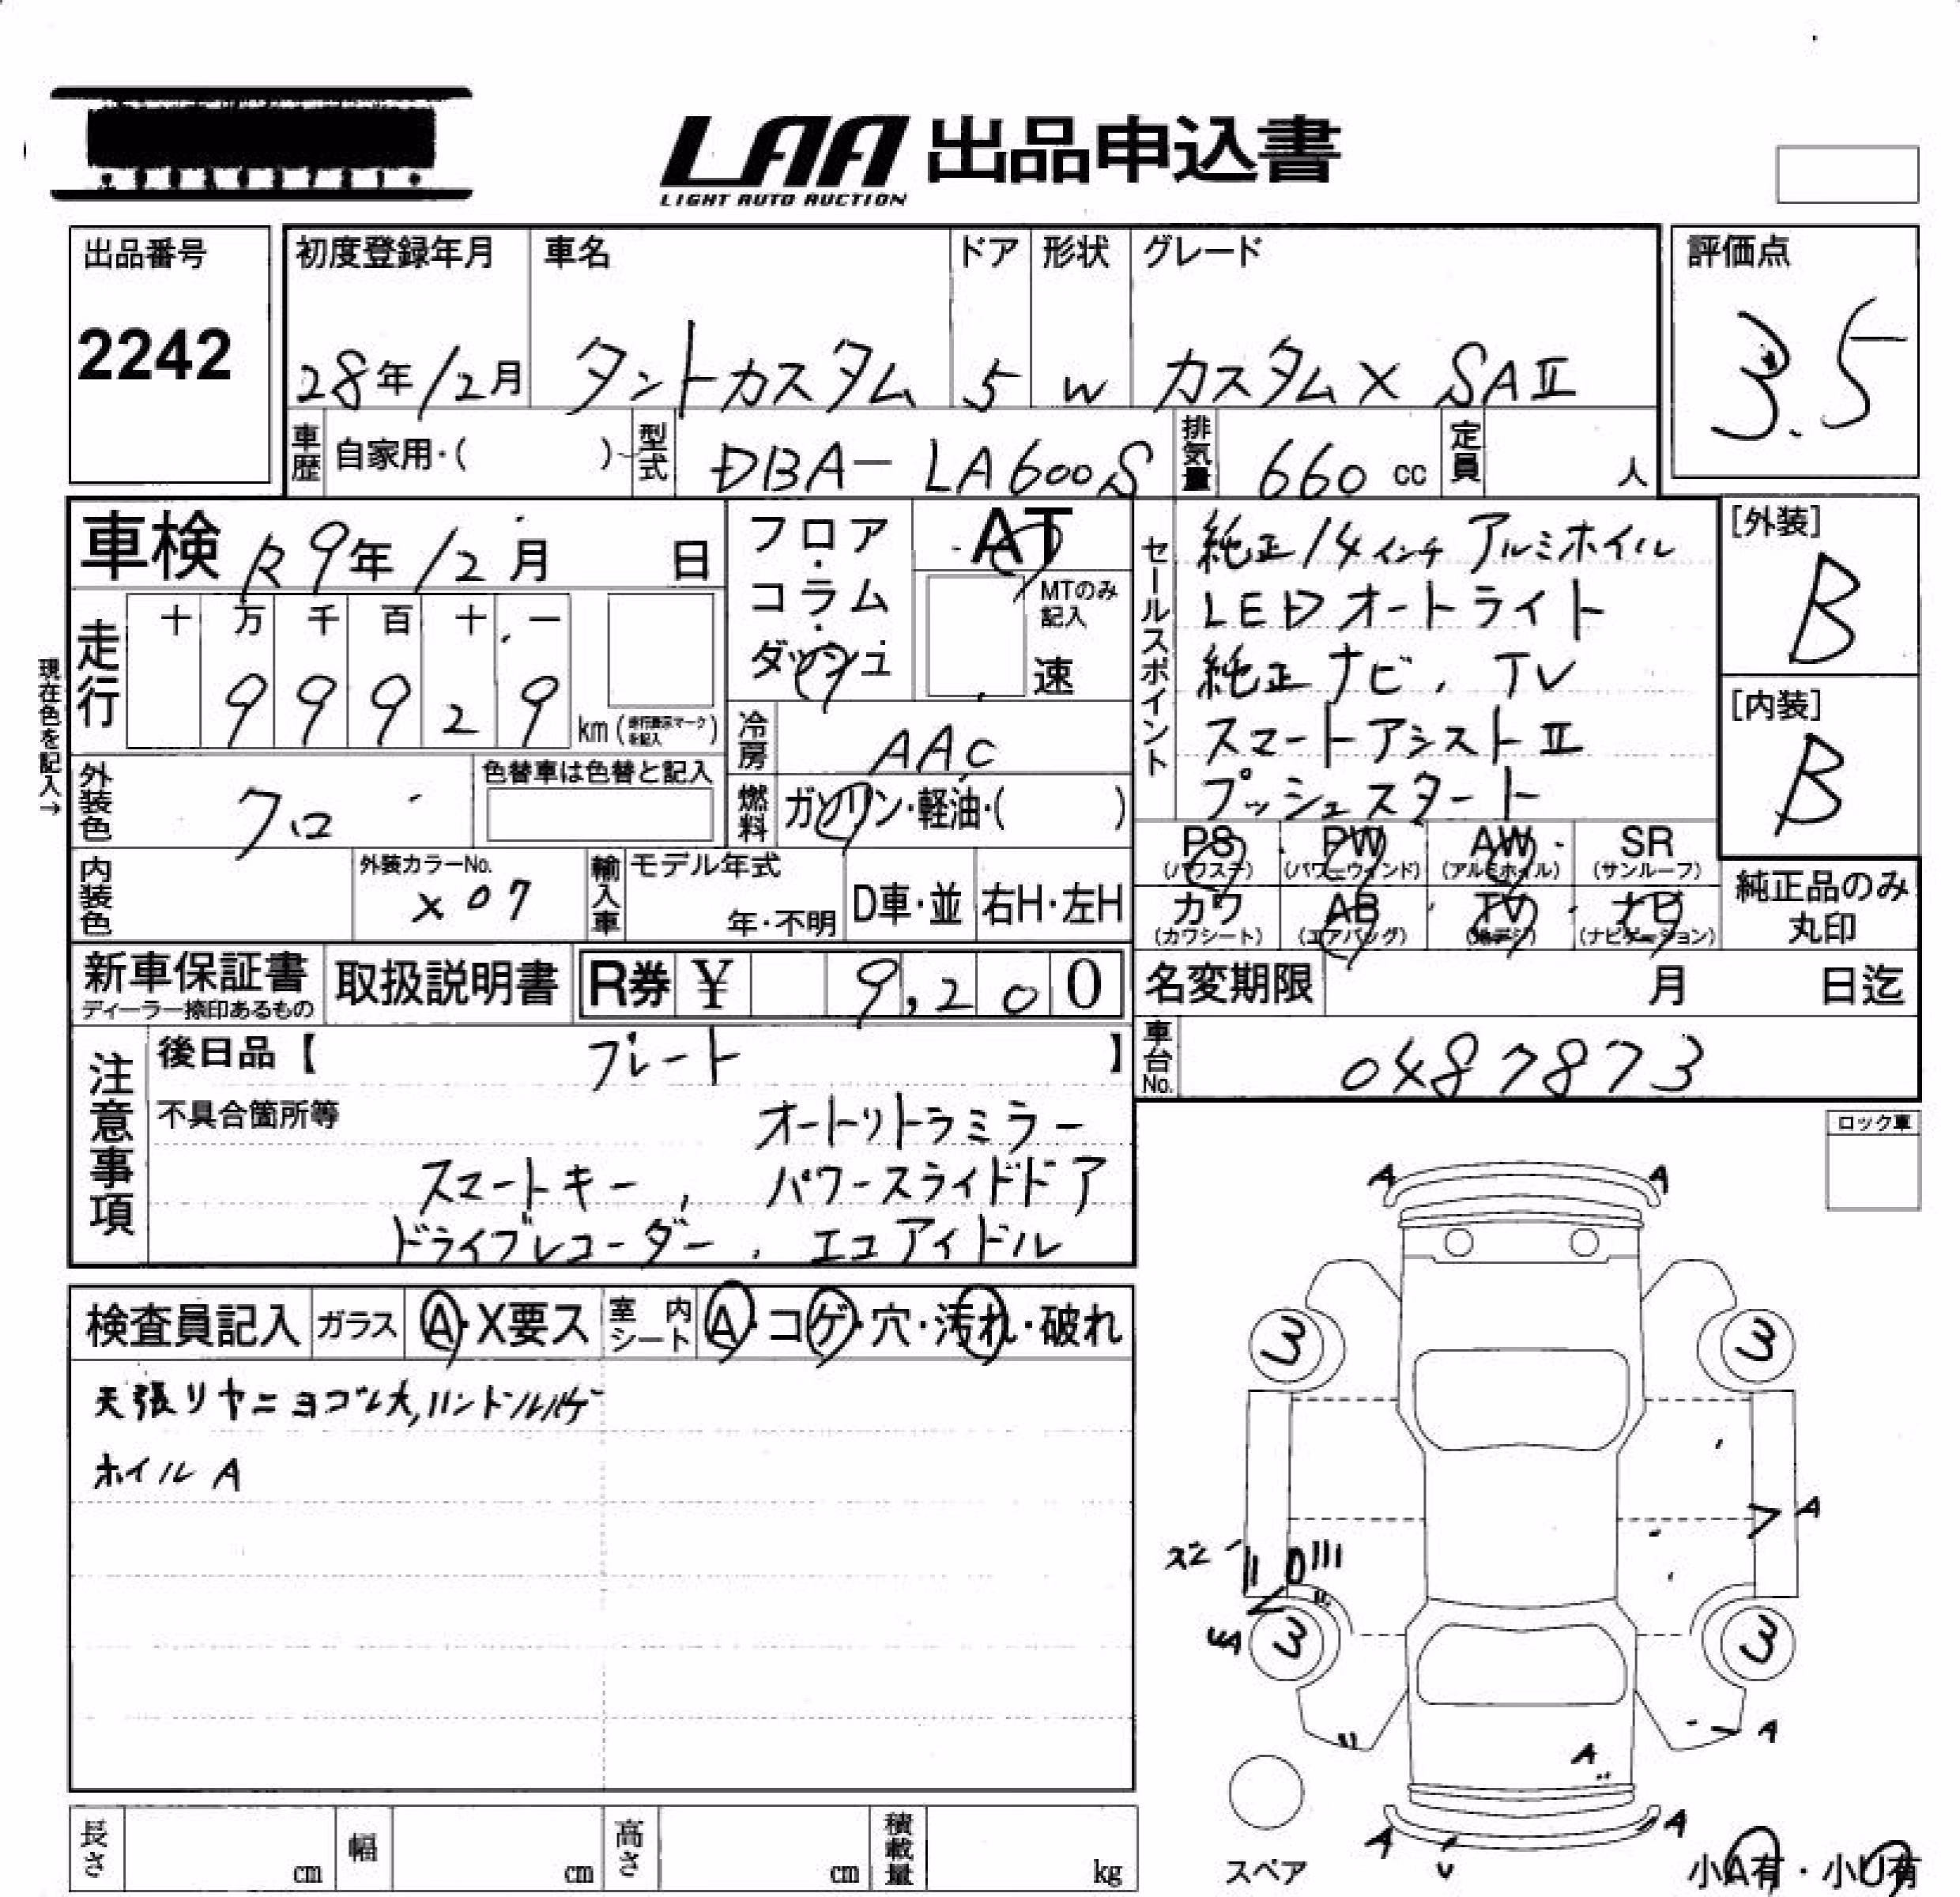 LAA 出品申込書
LIGHT AUTO AUCTION
出品番号
2242
初度登録年月 車名 ドア 形状 グレード
28年12月 タントカスタム 5 W カスタムX SAⅡ
評価点
3.5
車歴 自家用・( ) 型式 DBA-LA600S 排気量 660 cc 定員 人
車検 R9年12月 日
フロア・コラム・ダッシュ
AT
MTのみ記入
速
現在色を記入→
走行 十 万 千 百 十 一
9 9 9 2 9 km (走行表示マークを記入)
冷房 AAC
外装色 クロ 色替車は色替と記入
燃料 ガソリン・軽油・( )
内装色 外装カラーNo. X07
輸入車 モデル年式 年・不明 D車・並 右H・左H
セールスポイント
純正14インチアルミホイル
LEDオートライト
純正ナビ、TV
スマートアシストⅡ
プッシュスタート
[外装]
B
[内装]
B
PS PW AW SR
(パワステ) (パワーウィンド) (アルミホイル) (サンルーフ)
カワ AB TV ナビ
(カワシート) (エアバッグ) (地デジ) (ナビゲーション)
純正品のみ
丸印
新車保証書 取扱説明書 R券 ¥ 9,200
ディーラー捺印あるもの
名変期限 月 日迄
車台No. 0487873
注意事項
後日品【 プレート 】
不具合箇所等 オートリトラミラー
スマートキー、パワースライドドア
ドライブレコーダー、エコアイドル
検査員記入 ガラス A・X要ス 室内シート A・コゲ・穴・汚れ・破れ
天張リヤニヨゴレ大,ハンドルハゲ
ホイルA
ロック車
A A
3 3
A
3 3
A
A
A A
スペア
小A有・小U有
長さ cm 幅 cm 高さ cm 積載量 kg